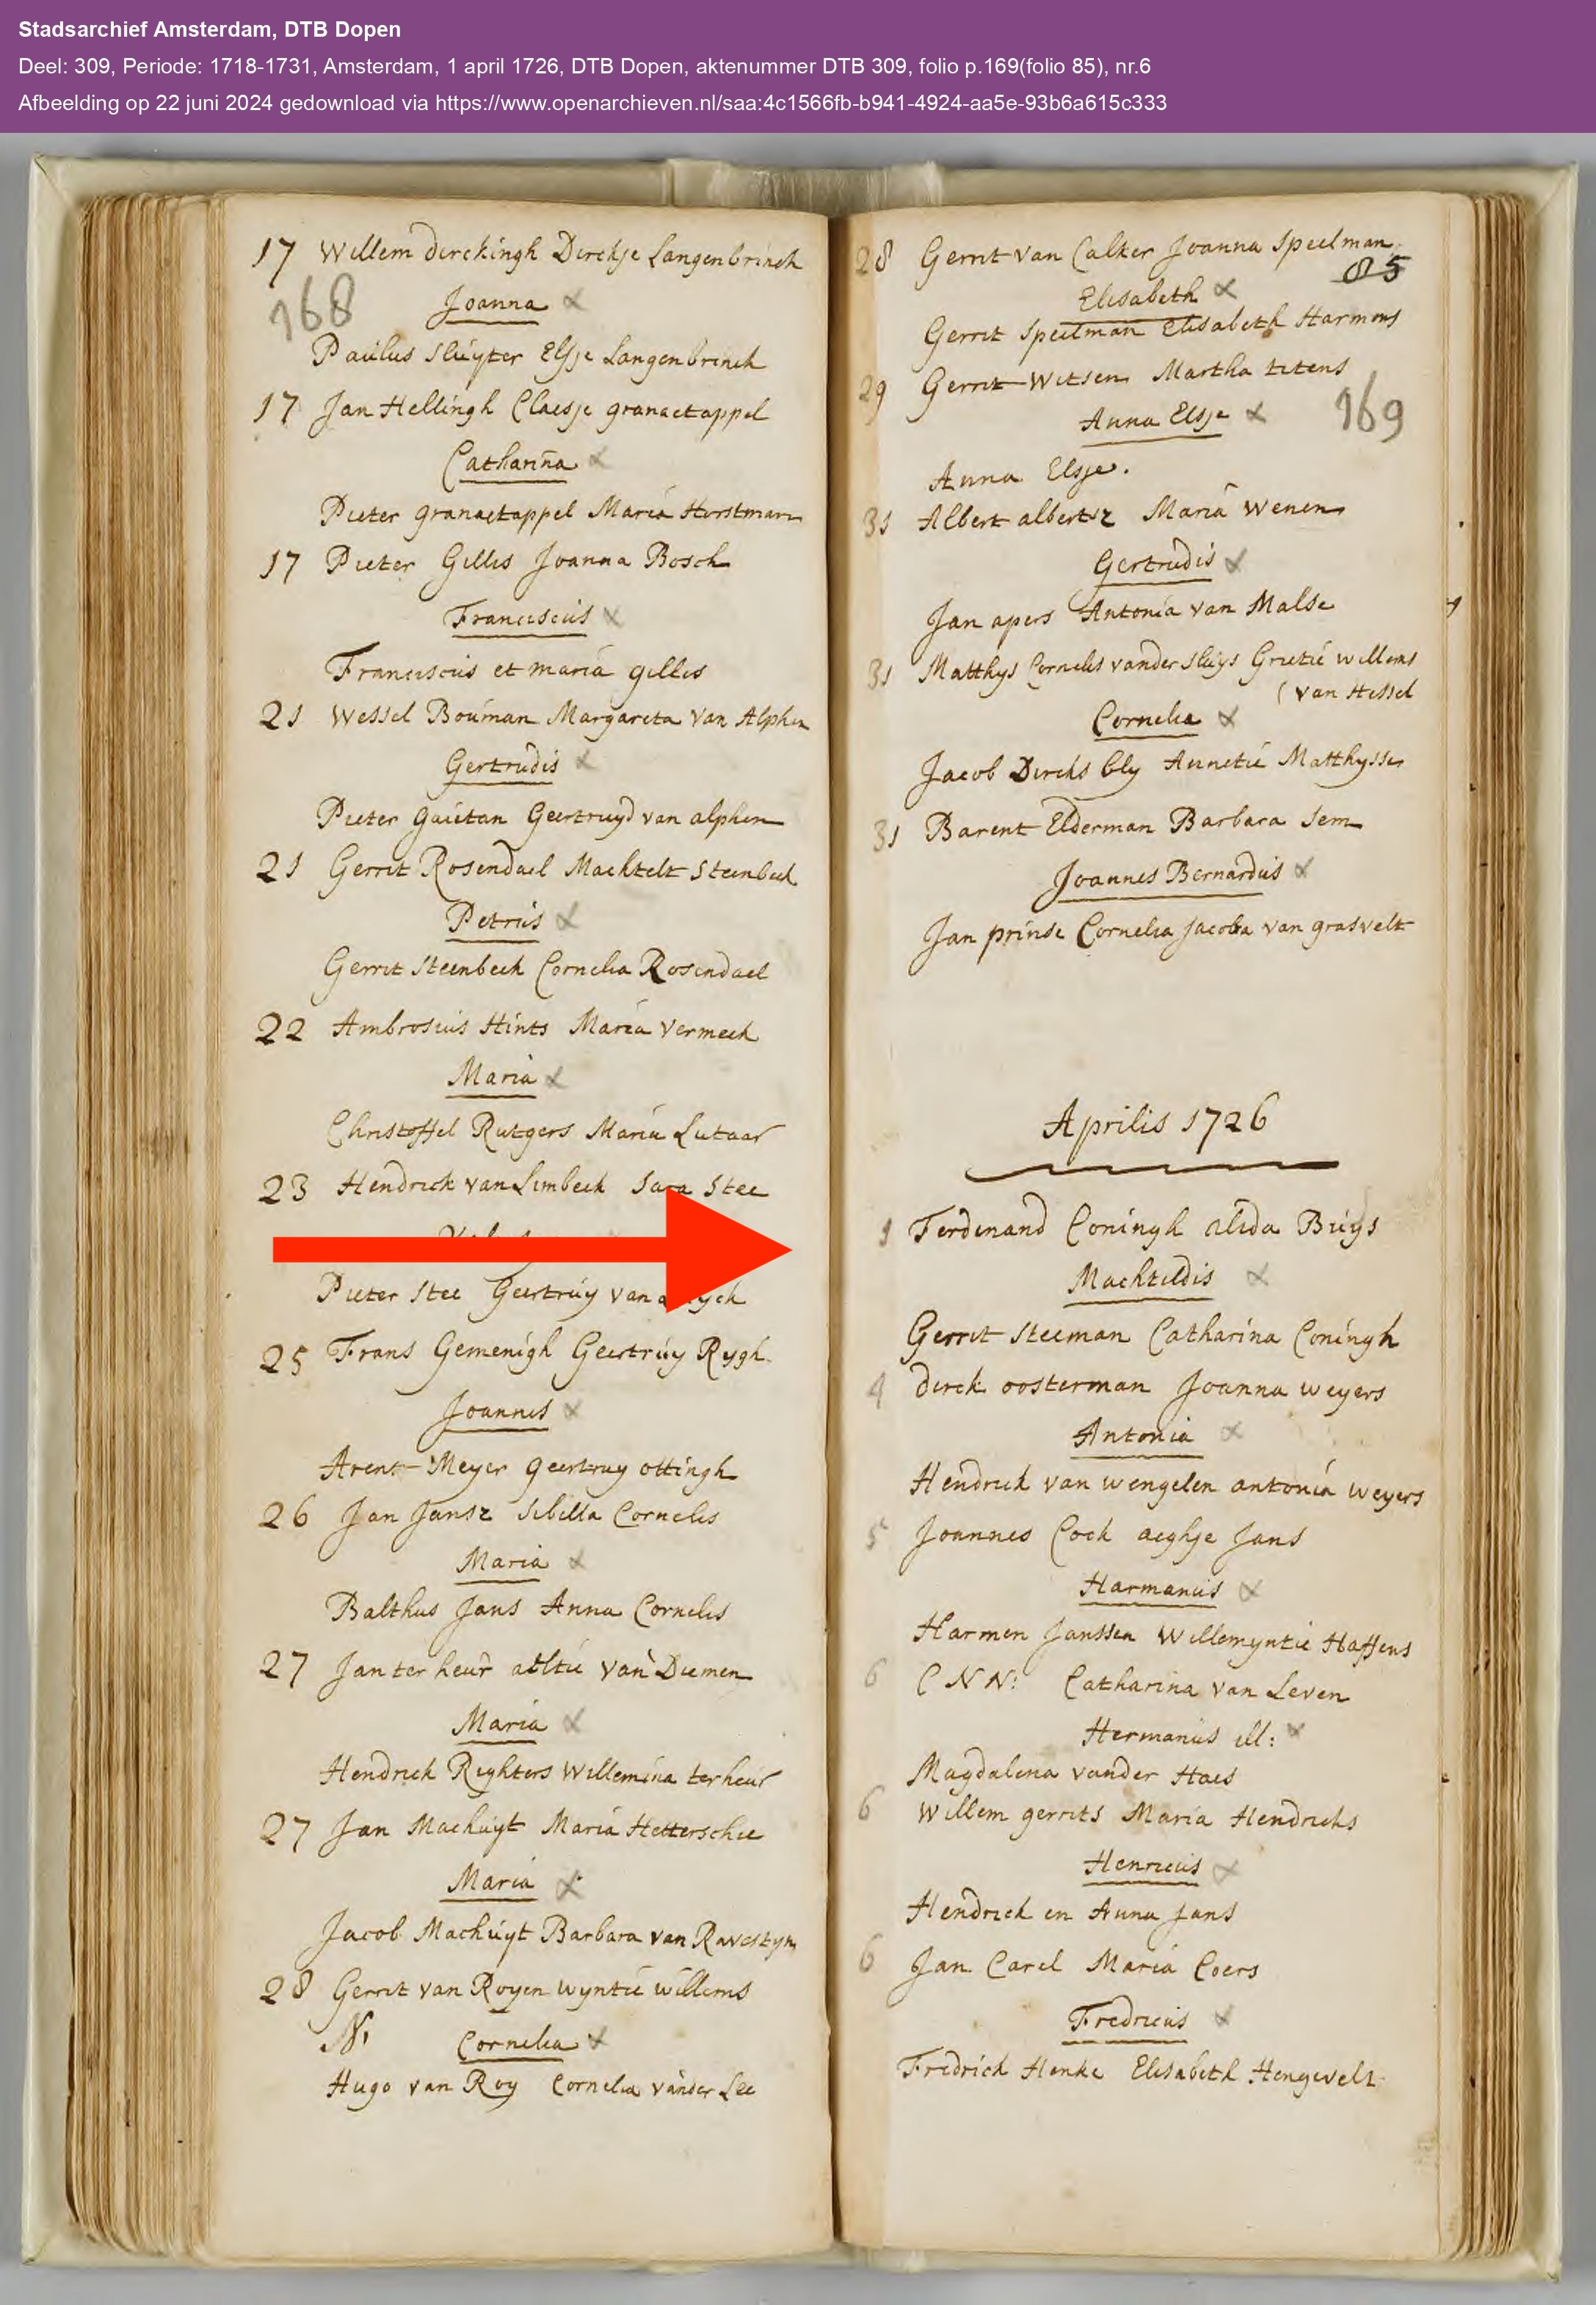 Stadsarchief Amsterdam, DTB Dopen
Deel: 309, Periode: 1718-1731, Amsterdam, 1 april 1726, DTB Dopen, aktenummer DTB 309, folio p.169(folio 85), nr.6
Afbeelding op 22 juni 2024 gedownload via https://www.openarchieven.nl/saa:4c1566fb-b941-4924-aa5e-93b6a615c333
17 Willem derckingh Derckje Langenbrinck
168
Joanna
Paulus Sluyter Elsje Langenbrinck
17 Jan Hellingh Claesje granaetappel
Catharina
Pieter granaetappel Maria Horstman
17 Pieter Gillis Joanna Bosch
Franciscus
Franciscus et maria gillis
21 Wessel Bouman Margareta van Alphen
Gertrudis
Pieter gautan Geertruyd van alphen
21 Gerrit Rosendael Machtelt Steenbeek
Petrus
Gerrit Steenbeek Cornelia Rosendael
22 Ambrosius Hints Maria Vermeek
Maria
Christoffel Rutgers Maria Lutaar
23 Hendrick van Limbeek Sara Stee
Pieter Stee Geertruy van
25 Frans Gemenigh Geertruy Rygh
Joannes
Arent Meyer geertruy ottingh
26 Jan Jansz Sibilla Cornelis
Maria
Balthus Jans Anna Cornelis
27 Jan ter heur aeltie van Diemen
Maria
Hendrick Righters Willemina ter heur
27 Jan Machuyt Maria Hetterschee
Maria
Jacob Machuyt Barbara van Ravesteyn
28 Gerrit van Royen wyntie willems
N. Cornelia
Hugo van Roy Cornelia vander Lee
28 Gerrit van Calker Joanna Speelman
85
Elisabeth
Gerrit Speelman Elisabeth Harmens
29 Gerrit Witsen Martha titens
Anna Elsje
169
Anna Elsje.
31 Albert albertsz Maria Wenen
Gertrudis
Jan apers Antonia van Malse
31 Matthys Cornelis vander sluys Grietie willems
(van Hessel
Cornelia
Jacob Dircks bly Annetie Matthysse
31 Barent Elderman Barbara Sem
Joannes Bernardus
Jan prinse Cornelia Jacoba van grasvelt
Aprilis 1726
1 Ferdinand Coningh alida Buys
Machteldis
Gerrit Steeman Catharina Coningh
4 dirck oosterman Joanna weyers
Antonia
Hendrick van wengelen antonia weyers
5 Joannes Cock aeghje Jans
Harmanus
Harmen Janssen Willemyntie Haffens
6 C NN: Catharina van Leven
Hermanus ill:
Magdalena vander Haes
6 Willem gerrits Maria Hendricks
Henricus
Hendrick en Anna Jans
6 Jan Carel Maria Coers
Fredricus
Fredrick Henke Elisabeth Hengevelt